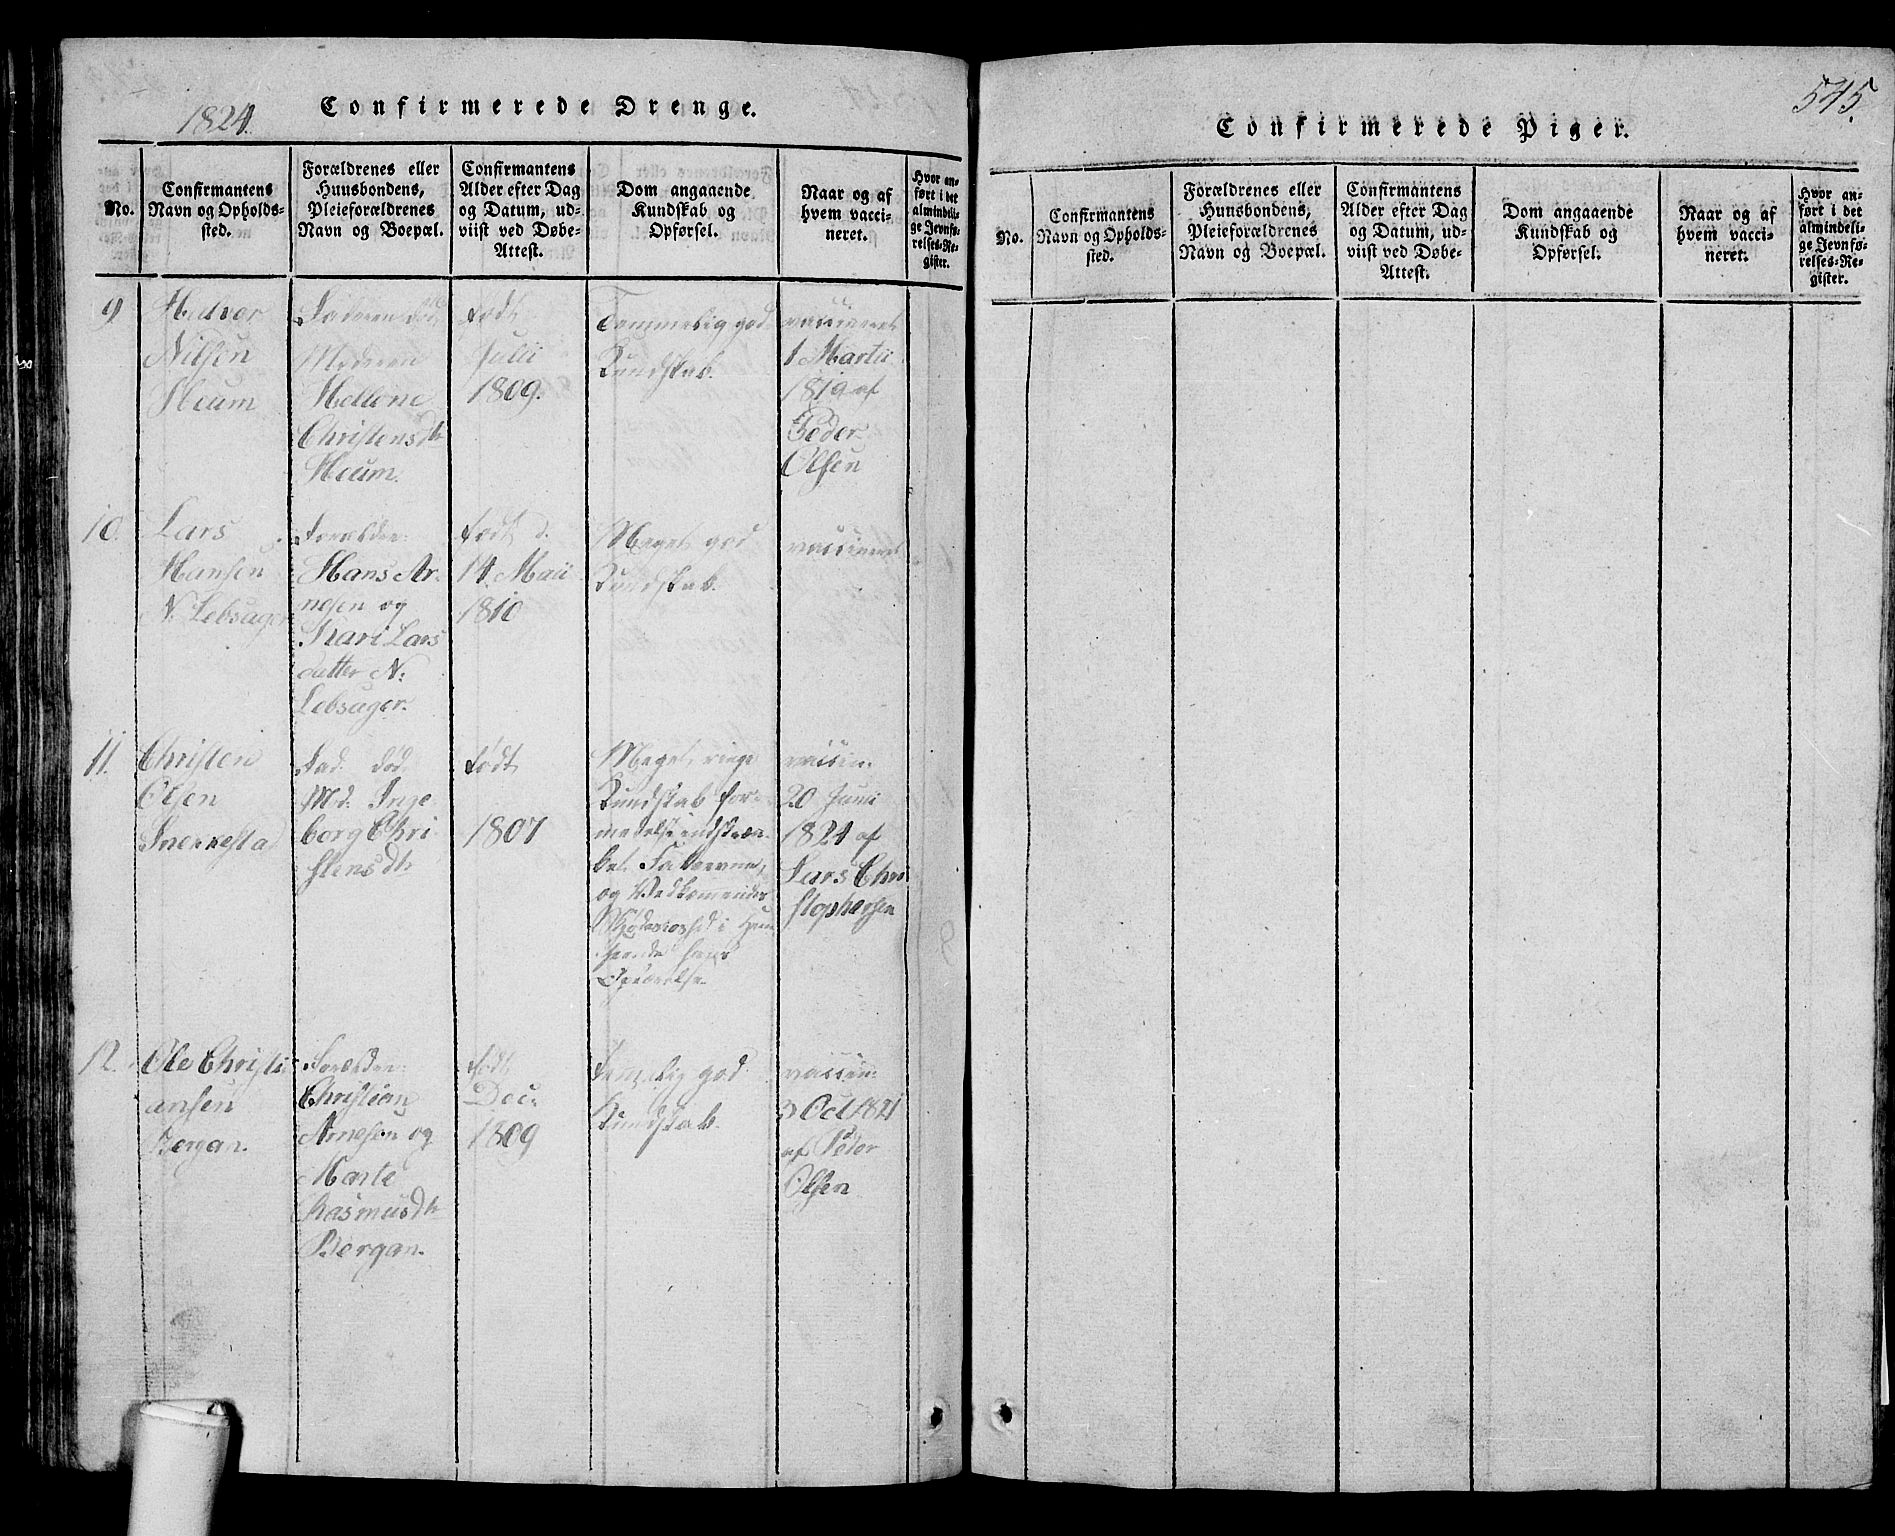 1824.
Confirmerede Drenge.
No.
Confirmantens
Navn og Opholds-
sted.
Forældrenes eller
Huusbondens,
Pleieforældrenes
Navn og Boepæl.
Confirmantens
Alder efter Dag
og Datum, ud-
viist ved Døbe-
Attest.
Dom angaaende
Kundskab og
Opførsel.
Naar og af
hvem vacci-
neret.
Hvor an-
ført i det
almindeli-
ge Jevnfø-
relses-Re-
gister.
9
Halvor
Nilsen
Heum
Faderen død
Moderen
Hellene
Christensdtr
Heum.
født
Julii
1809.
Temmelig god
Kundskab.
vaccineret
1 Martii
1819 af
Peder
Olsen
10.
Lars
Hansen
N. Lebsager
Forældre:
Hans Ar-
nesen og
Kari Lars
datter N:
Lebsager.
født d.
14 Maii
1810
Meget god
Kundskab.
vaccineret
11.
Christen
Olsen
Snekkestad
Fad. død
Mod. Inge-
borg Chri-
stensdtr
født
1807
Meget ringe
Kundskab for-
medelst indskræn-
ket Fatteevne,
og Vedkommendes
i
hans
vaccin:
20 Junii
1824 af
Lars Chri
stophersen
12.
Ole Christi-
ansen
Bergan.
Forældre:
Christian
Arnesen og
Marte
Rasmusdtr
Bergan.
født
Dec:
1809
Temmelig god
Kundskab.
vaccin:
3 Oct 1821
af Peder
Olsen
545.
Confirmerede Piger.
No.
Confirmantens
Navn og Opholds-
sted.
Forældrenes eller
Huusbondens,
Pleieforældrenes
Navn og Boepæl.
Confirmantens
Alder efter Dag
og Datum, ud-
viist ved Døbe-
Attest.
Dom angaaende
Kundskab og
Opførsel.
Naar og af
hvem vacci-
neret.
Hvor an-
ført i det
almindeli-
ge Jevnfø-
relses-Re-
gister.